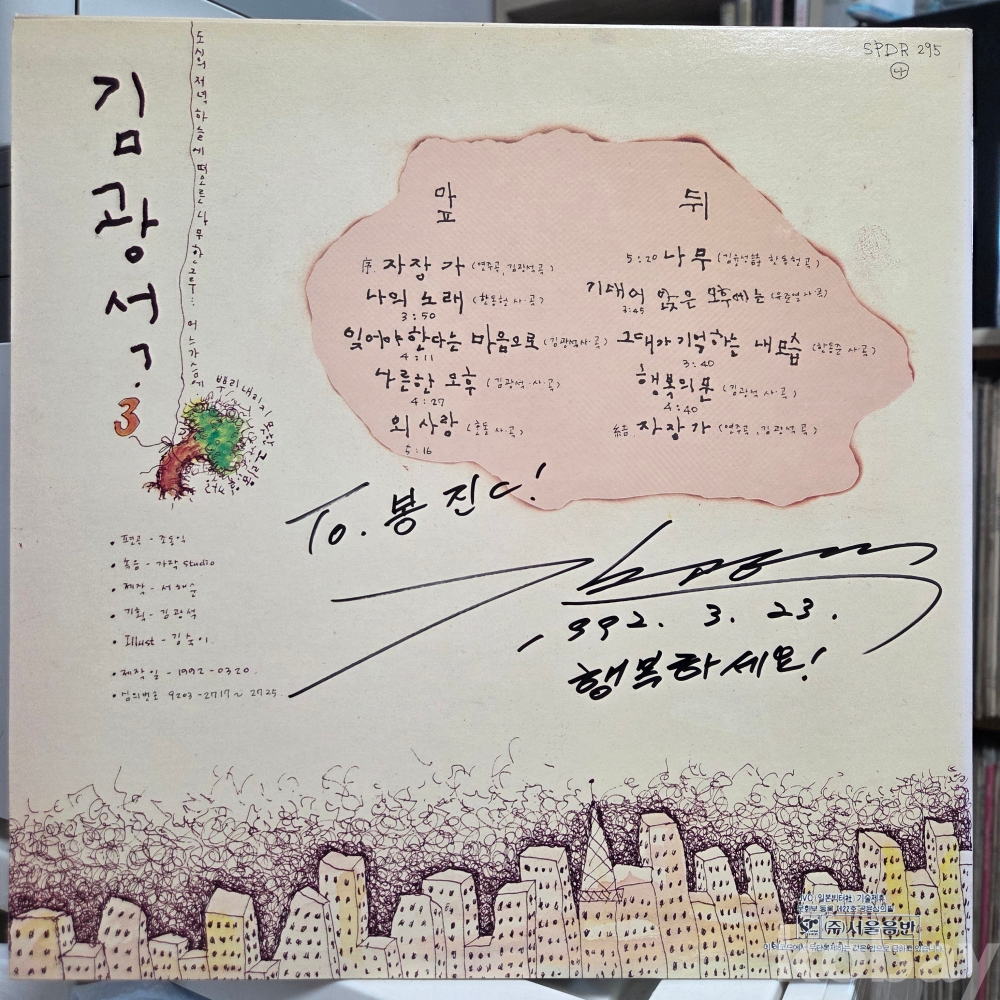 SPDR 295
김광석 3
도심의 저녁 하늘에 떠오른 나무 한 그루 : 어느 가슴에
뿌리내리지 못한 그리움
앞
序. 자장가 (연주곡, 김광석 곡)
나의 노래 (한동헌 사·곡)
3:50
잊어야 한다는 마음으로 (김광석 사·곡)
4:11
나른한 오후 (김광석·사·곡)
4:27
외사랑 (한동헌 사·곡)
5:16
뒤
5:20 나무 (김윤성 詩 한동헌 곡)
기대어 앉은 오후에는 (유준열 사·곡)
3:45
그대가 기억하는 내 모습 (한동준 사·곡)
3:40
행복의 문 (김광석 사·곡)
4:40
結. 자장가 (연주곡, 김광석 곡)
To. 봉진C!
1992. 3. 23.
행복하세요!
• 편곡 - 조동익
• 녹음 - 가락 Studio
• 제작 - 서해순
• 기획 - 김광석
• Illust - 김숙이.
• 제작일 - 1992-0320.
• 심의번호 9203-2717~2725.
(주)서울음반